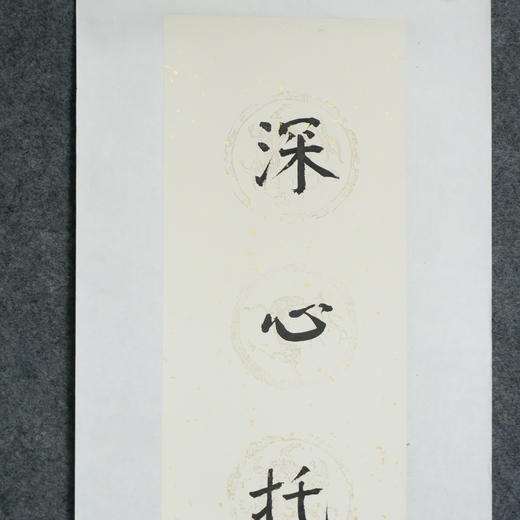 深心托